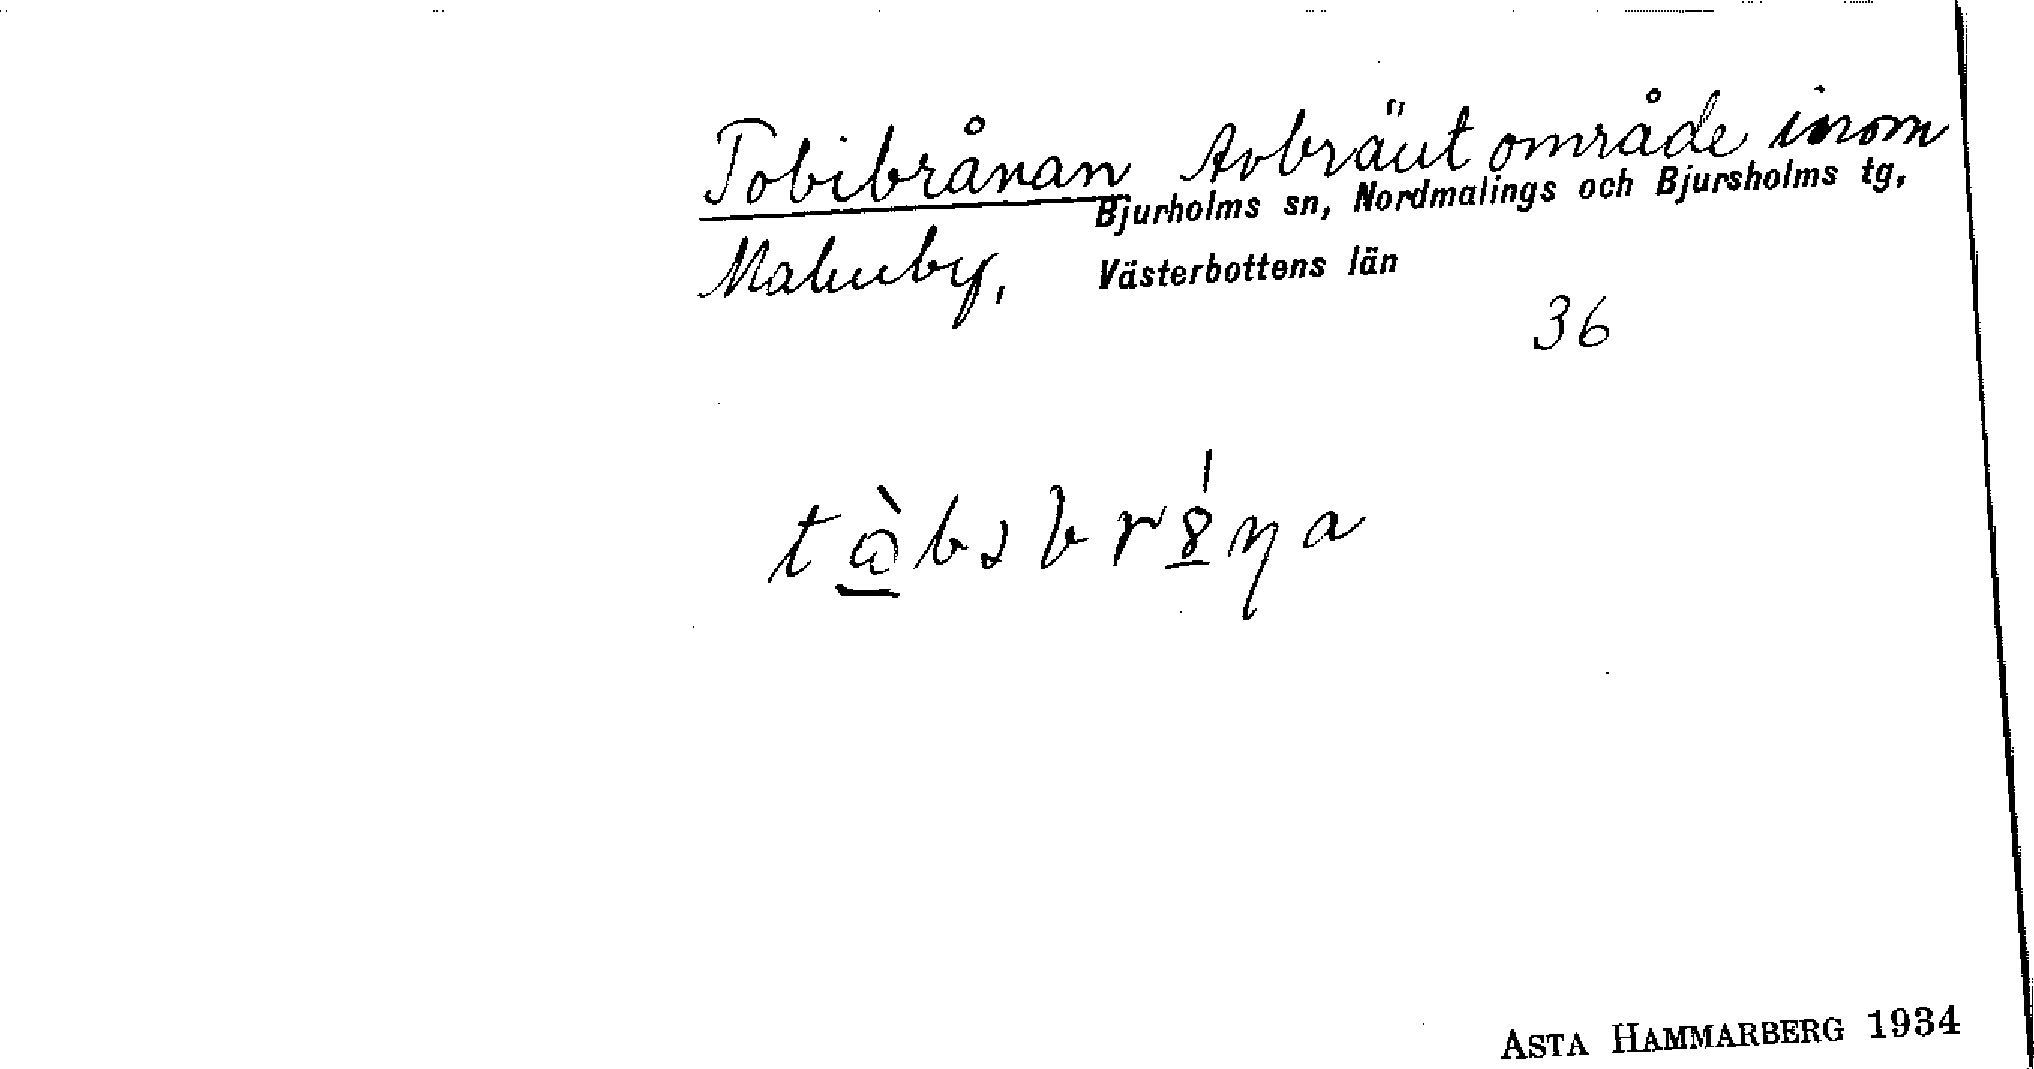 Tobibrånan Avbränt område inom
Bjurholms sn, Nordmalings och Bjursholms tg,
Maluby, Västerbottens län
36
ASTA HAMMARBERG 1934